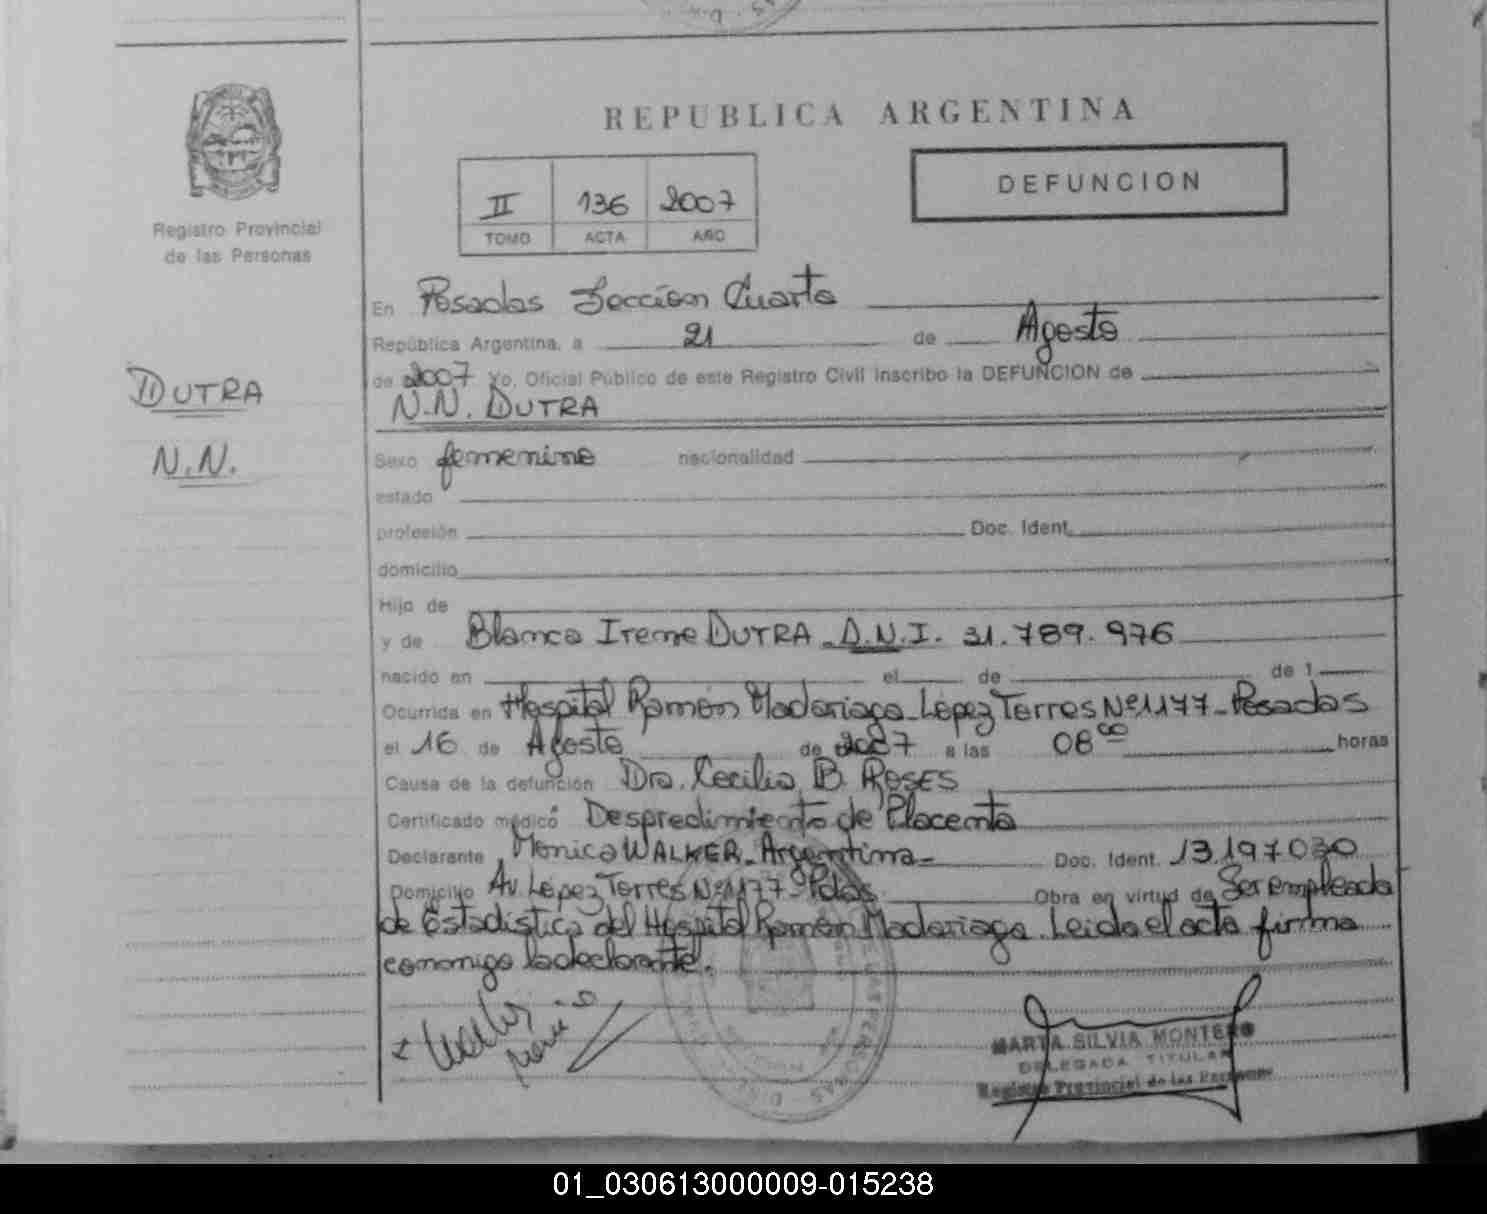 REPUBLICA ARGENTINA
DEFUNCION
II 136 2007
TOMO ACTA AÑO
Registro Provincial
de las Personas
En Posadas Seccion Cuarta
República Argentina, a 21 de Agosto
de 2007 Yo, Oficial Público de este Registro Civil inscribo la DEFUNCION de
N.N. DUTRA
DUTRA
N.N.
Sexo femenino nacionalidad
estado
profesión Doc. Ident.
domicilio
Hijo de
y de Blanca Irene DUTRA - D.N.I. 31.789.976
nacido en el de de 1
Ocurrida en Hospital Ramón Madariaga - López Torres Nº 1177 - Posadas
el 16 de Agosto de 2007 a las 08 00 horas
Causa de la defunción Dra. Cecilia B. ROSES
Certificado médico Despredimiento de Placenta
Declarante Monica WALKER - Argentina - Doc. Ident. 13.197.030
Domicilio Av. López Torres Nº 1177 - Pdas. Obra en virtud de Ser empleada
de Estadística del Hospital Ramón Madariaga. Leida el acta firma
conmigo la declarante.
MARTA SILVIA MONTERO
DELEGADA TITULAR
Registro Provincial de las Personas
01_030613000009-015238